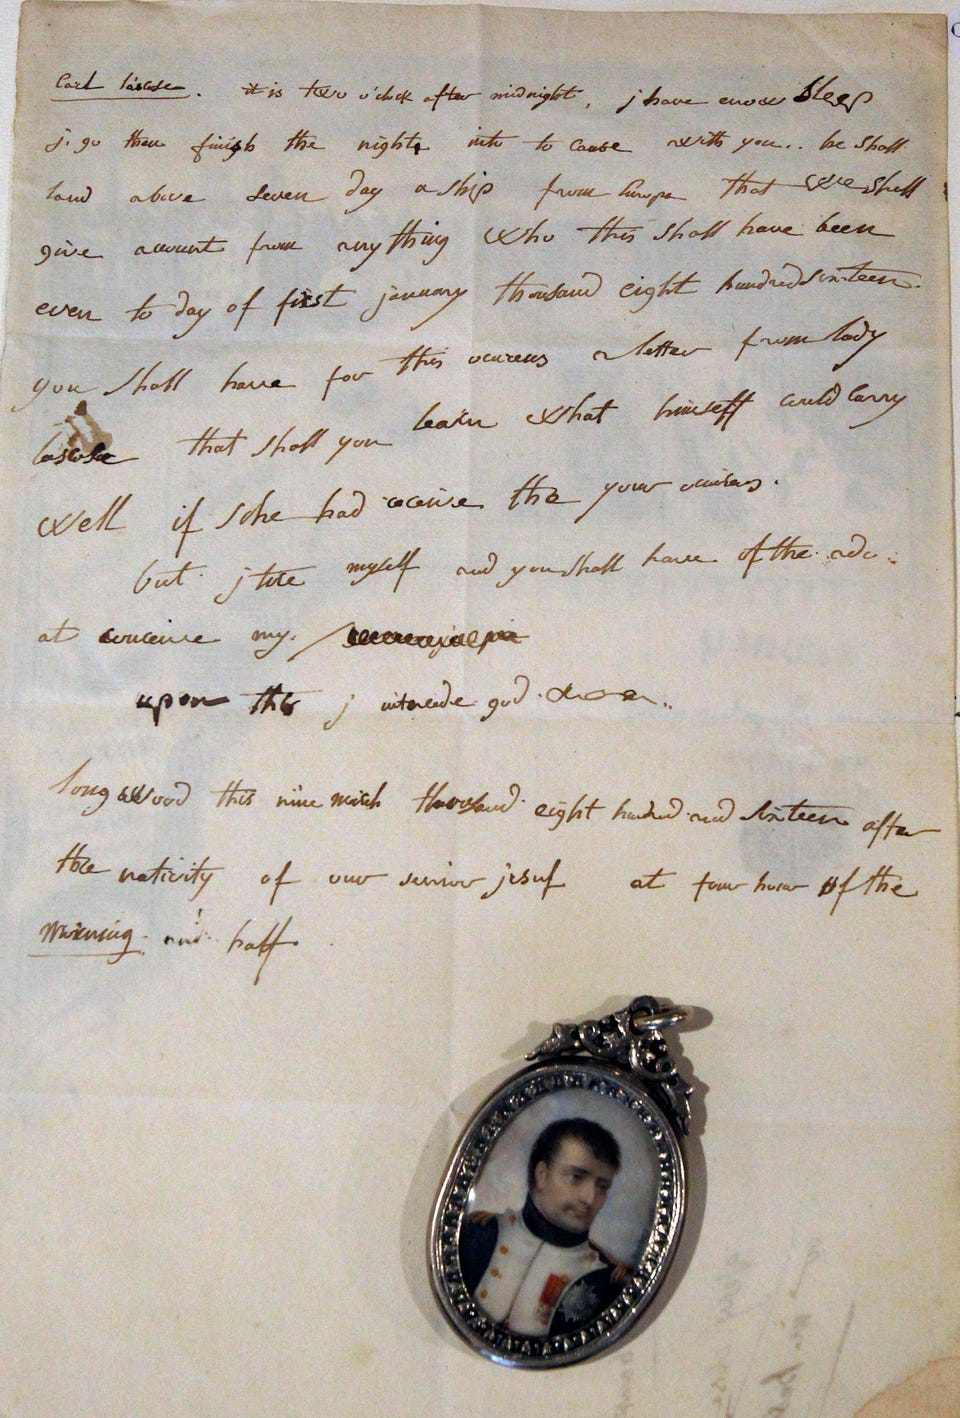 it is two o'clock after midnight, j have enow sleep
j. go then finish the night into to cause with you.. he shall
land above seven day a ship from Europe that we shell
give account from any thing who this shall have been
even to day of first january thousand eight hundred sixteen.
you shall have for this ocurens a letter from lady
lascase that shall you learn what himself could carry
well if s he had receive the your ocurens.
but j tire myself and you shall have of the ado..
at conceive my.
upon this j intercede god
longwood this nine march thousand eight hundred and sixteen after
the nativity of our jesus at four hour of the
morning and half.